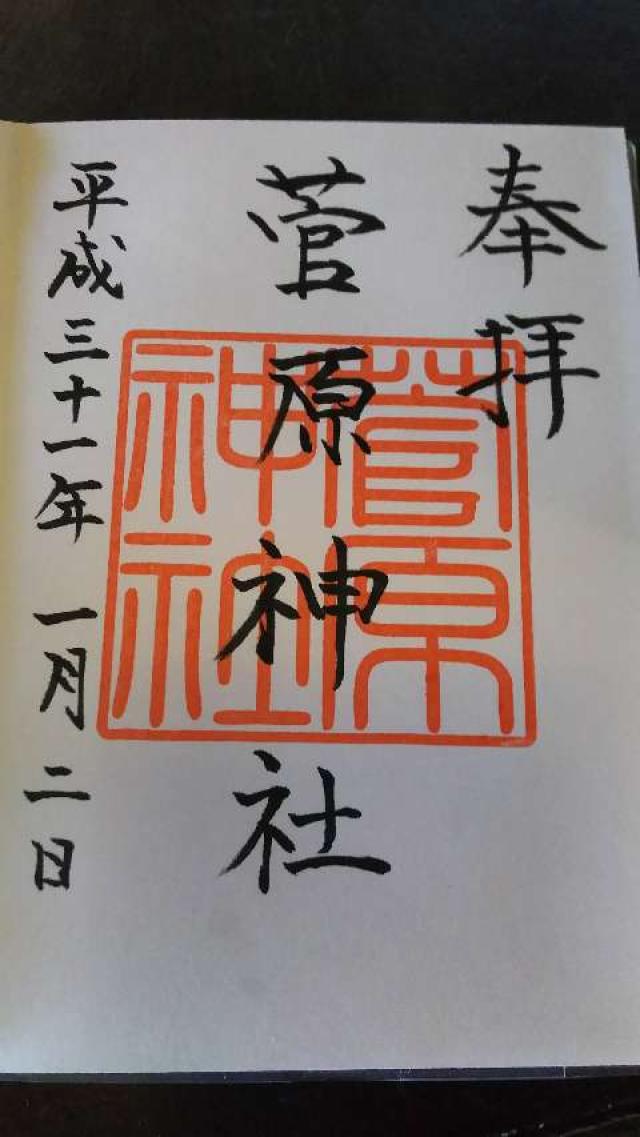 奉拝
菅原神社
菅原神社
平成三十一年 一月二日